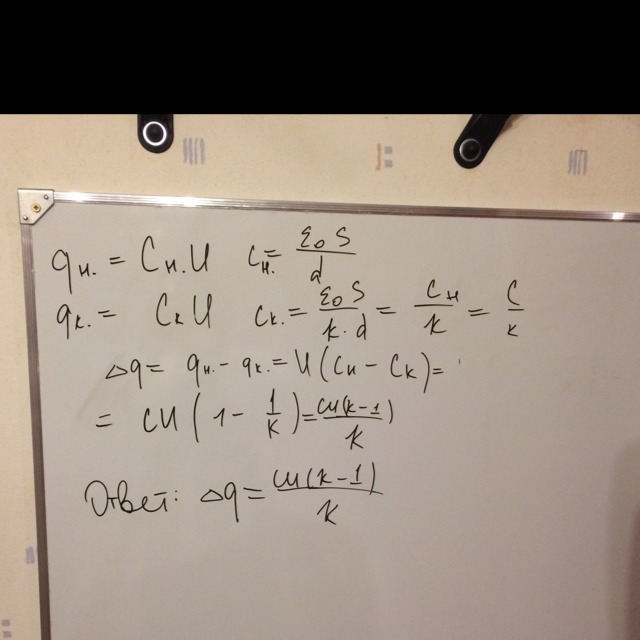 qн. = Cн.U Cн. = ε₀S/d
qк. = CкU Cк. = ε₀S/(k·d) = Cн/k = C/k
Δq = qн. - qк. = U(Cн - Cк) =
= CU(1 - 1/k) = CU(k-1)/k
Ответ: Δq = CU(k-1)/k